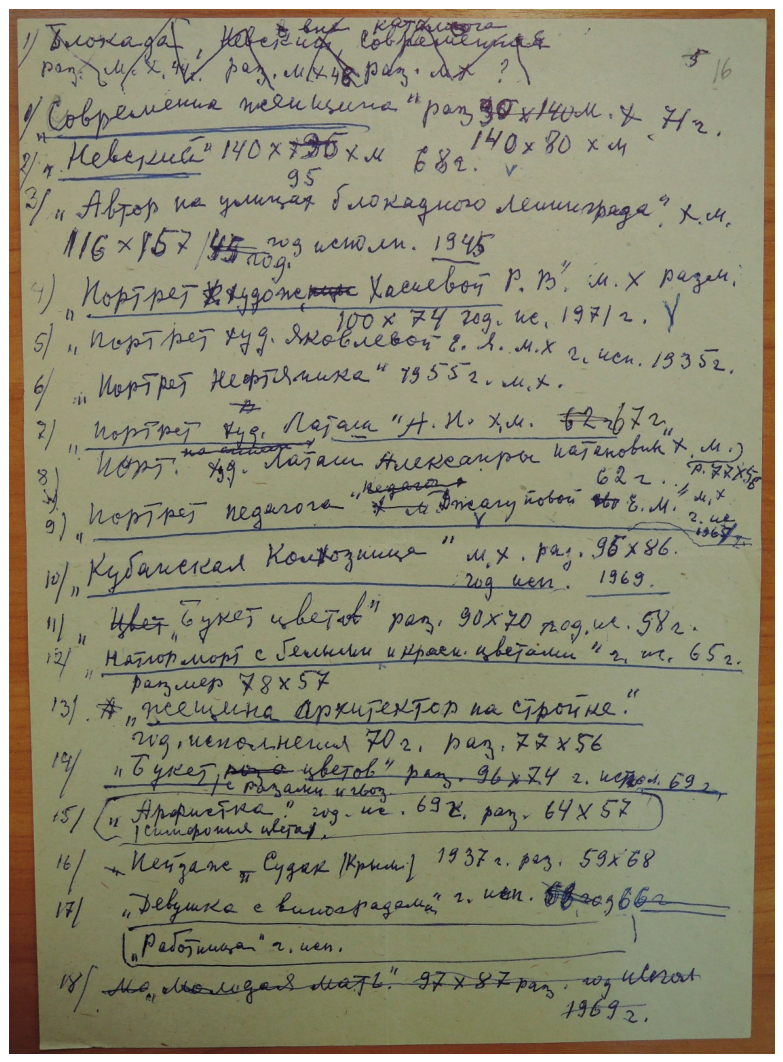 вне каталога
1) Блокада, Невский, Современная
раз. м. х. 44. раз. м х 48 раз. м х ?
5 16
1) "Современна женщина" раз 90 х 140 м. х 71 г.
140 х 80 х м
2) "Невский" 140 х 135 х м 68 г. v
95
3) "Автор на улицах блокадного Ленинграда". х.м.
116 х 157 / 45 год исполн. 1945
год.
4) "Портрет х. худож Хасиевой Р. В". м. х разм.
100 х 74 год. ис. 1971 г. V
5) "Портрет худ. Яковлевой Е. Я. м. х г. исп. 1935 г.
6) "Портрет Нефтяника" 1955 г. м. х.
7) "Портрет худ. Латаш" А. Н. х. м. 62 67 г.
8) Порт. худ. Латаш Александры Натановны" х. м.
62 г. . р. 77 х 56
9) "Портрет педагога "педагога х м Джагуповой Е. М." м. х
г. ис
1967 г.
10) "Кубанская Колхозница" м. х. раз. 95 х 86.
год исп. 1969.
11) " Цвет "Букет цветов" раз. 90 х 70 год. ис. 58 г.
12) "Натюрморт с белыми и красн. цветами" г. ис. 65 г.
размер 78 х 57
13) "Жещина архитектор на стройке."
год. исполнения 70 г. раз. 77 х 56
14) "Букет, роза цветов" раз. 96 х 74 г. испол. 69 г.
с розами и гвоз
15) "Арфистка". год. ис. 69 г. раз. 64 х 57
(симфония цвета).
16) "Пейзаж" Судак (Крым) 1937 г. раз. 59 х 68
17) "Девушка с виноградами" г. исп. 68 год 66 г
"Работница" г. исп.
18) мо "молодая мать". 97 х 87 раз. год испол
1969 г.